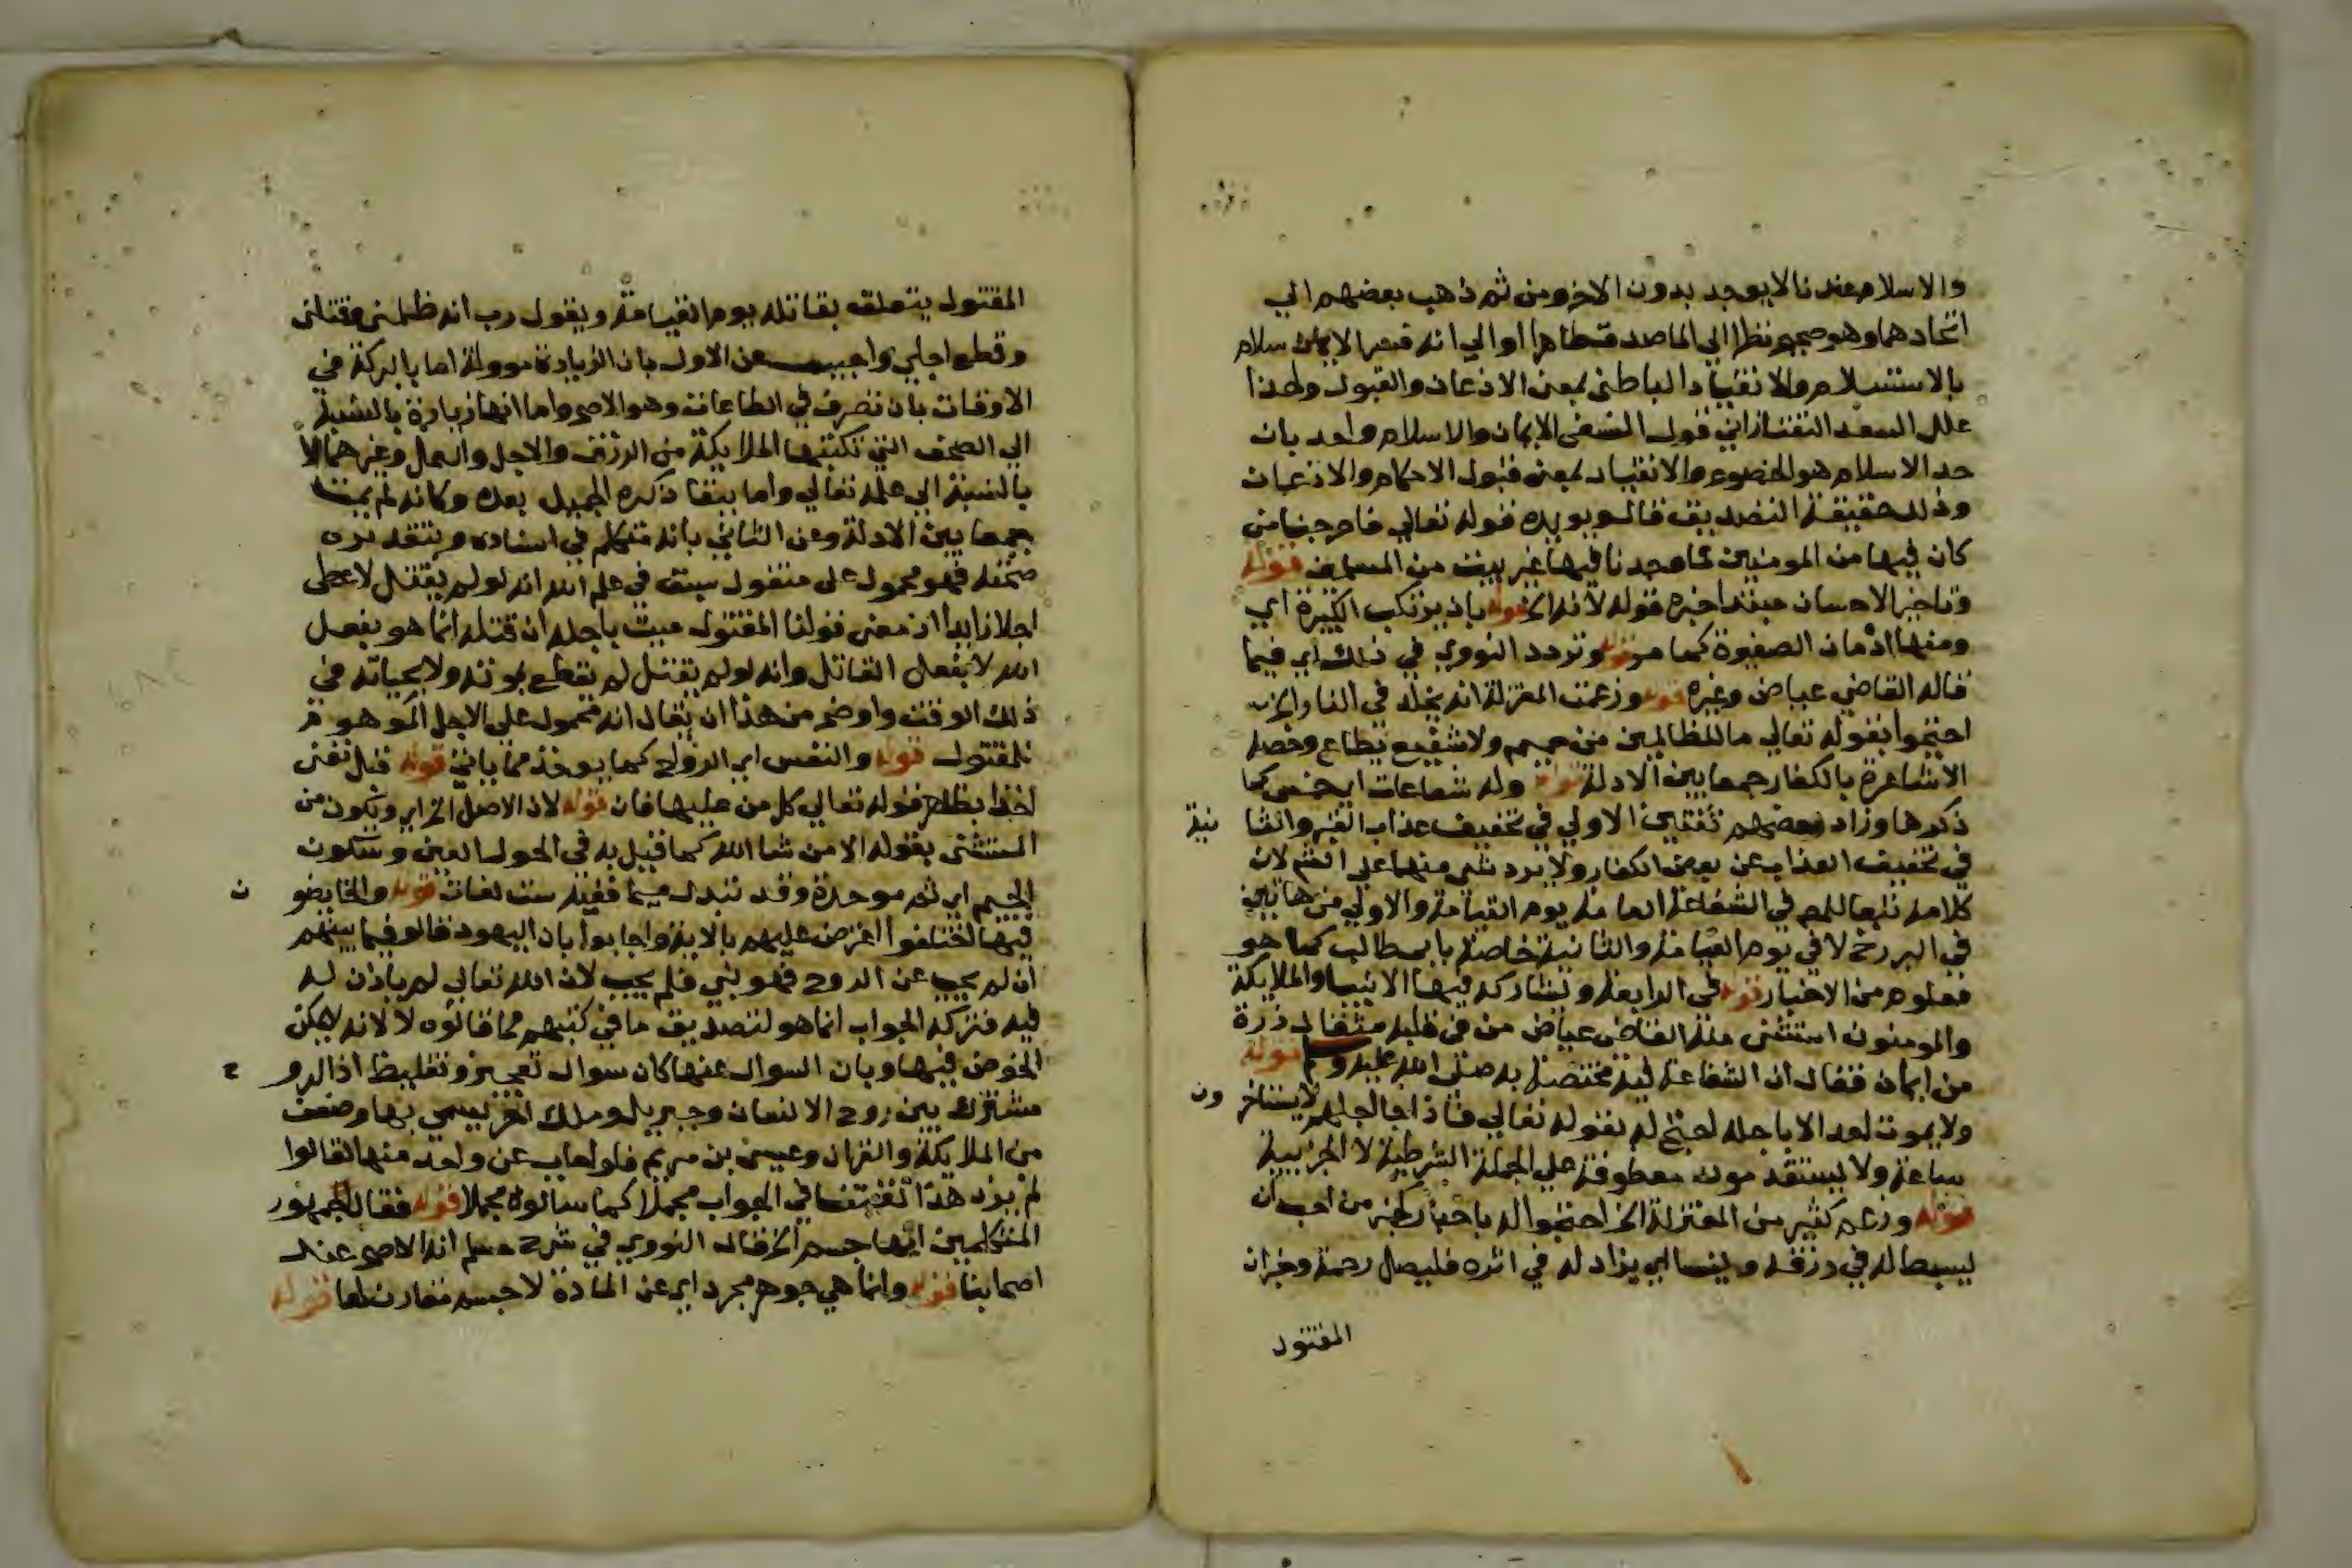 والاسلام عندنا لا يوجد بدون الاخر ومن ثم ذهب بعضهم الي
اتحادهما وهو صحيح نظرا الي الماصدق ظاهرا او الي انه فسر الاسلام
بالاستسلام والانقياد الباطني بمعني الاذعان والقبول ولهذا
علل السعد التفتازاني قول النسفي الايمان والاسلام واحد بان
حد الاسلام هو الخضوع والانقياد بمعني قبول الاحكام والاذعان
وذلك حقيقة التصديق قال ويويده قوله تعالي فاخرجنا من
كان فيها من المومنين فما وجدنا فيها غير بيت من المسلمين قوله
وتاخير الاحسان مبتدا خبره قوله لانه الخ قوله بان يرتكب الكبيرة اي
ومنها ادمان الصغيرة كما مر قوله وتردد النووي في ذلك اي فيما
قاله القاضي عياض وغيره قوله وزعمت المعتزلة انه يخلد في النار الخ
احتجوا بقوله تعالي ما للظالمين من حميم ولا شفيع يطاع وخصه
الاشاعرة بالكفار جمعا بين الادلة قوله وله شفاعات اي خمس كما
ذكرها وزاد بعضهم ثنتين الاولي في تخفيف عذاب القبر والثا نية
في تخفيف العذاب عن بعض الكفار ولا يرد شي منهما علي الشم لان
كلامه تبعا للمم في الشفاعة العامة يوم القيامة والاولي من هاتين
في البرزخ لا في يوم القيامة والثانية خاصة بابي طالب كما هو
معلوم من الاخبار قوله في الرابعة وتشاركه فيها الانبيا والملايكة
والمومنون استثني منه القاضي عياض من في قلبه مثقال ذرة
من ايمان فقال ان الشفاعة فيه مختصة به صلي الله عليه وسلم قوله
ولا يموت احد الا باجله احتج له بقوله تعالي فاذا جا اجلهم لا يستاخر ون
ساعة ولا يستقدمون معطوفة علي الجملة الشرطية لا الجزيية
قوله وزعم كثير من المعتزلة الخ احتجوا له باخبار كخبر من احب ان
يبسط له في رزقه وينسا اي يزاد له في اثره فليصل رحمه وخبر ان
المقتول
المقتول يتعلق بقاتله يوم القيامة ويقول رب انه ظلمني وقتلني
وقطع اجلي واجيب عن الاول بان الزيادة موولة اما بالبركة في
الاوقات بان تصرف في الطاعات وهو الاصح واما انها زيادة بالنسبة
الي الصحف التي تكتبها الملايكة من الرزق والاجل والعمل وغيرهما لا
بالنسبة الي علمه تعالي واما ببقا ذكره الجميل بعده وكانه لم يمت
جمعا بين الادلة وعن الثاني بانه متكلم في اسناده وبتقدير
صحته فهو محمول علي مقتول سبق في علم الله انه لو لم يقتل لاعطي
اجلا زايدا اذ معني قولنا المقتول ميت باجله ان قتله انما هو بفعل
الله لا بفعل القاتل وانه لو لم يقتل لم يقطع بموته ولا بحياته في
ذلك الوقت واوضح من هذا ان يقال انه محمول علي الاجل الذي هو
للمقتول قوله والنفس اي الروح كما يوخذ مما ياتي قوله قبل تفني
اخذا بظاهر قوله تعالي كل من عليها فان قوله لان الاصل الخ اي ويكون من
المستثني بقوله الا من شا الله كما قيل به في الحور العين وسكون
الجيم اي ثم موحدة وقد تبدل ميما ففيه ست لغات قوله والخايضو ن
فيها اختلفوا اعترض عليهم بالاية واجابوا بان اليهود قالوا فيما بينهم
ان لم يجب عن الروح فهو نبي فلم يجب لان الله تعالي لم ياذن له
فيه فترك الجواب انما هو لتصديق ما في كتبهم مما قالوه لا لانه لا يمكن
الخوض فيها وبان السوال عنها كان سوال تعجيز وتغليط اذ الرو ح
مشترك بين روح الانسان وجبريل وملك اخر يسمي بها وصنف
من الملايكة والقران وعيسي بن مريم فلو اجاب عن واحد منها لقالوا
لم نرد هذا تعنتا في الجواب مجملا كما سالوه مجملا قوله فقال جمهور
المتكلمين انها جسم الخ قال النووي في شرح مسلم انه الاصح عند
اصحابنا قوله وانما هي جوهر مجرد اي عن المادة لا جسم مقارن لها قوله